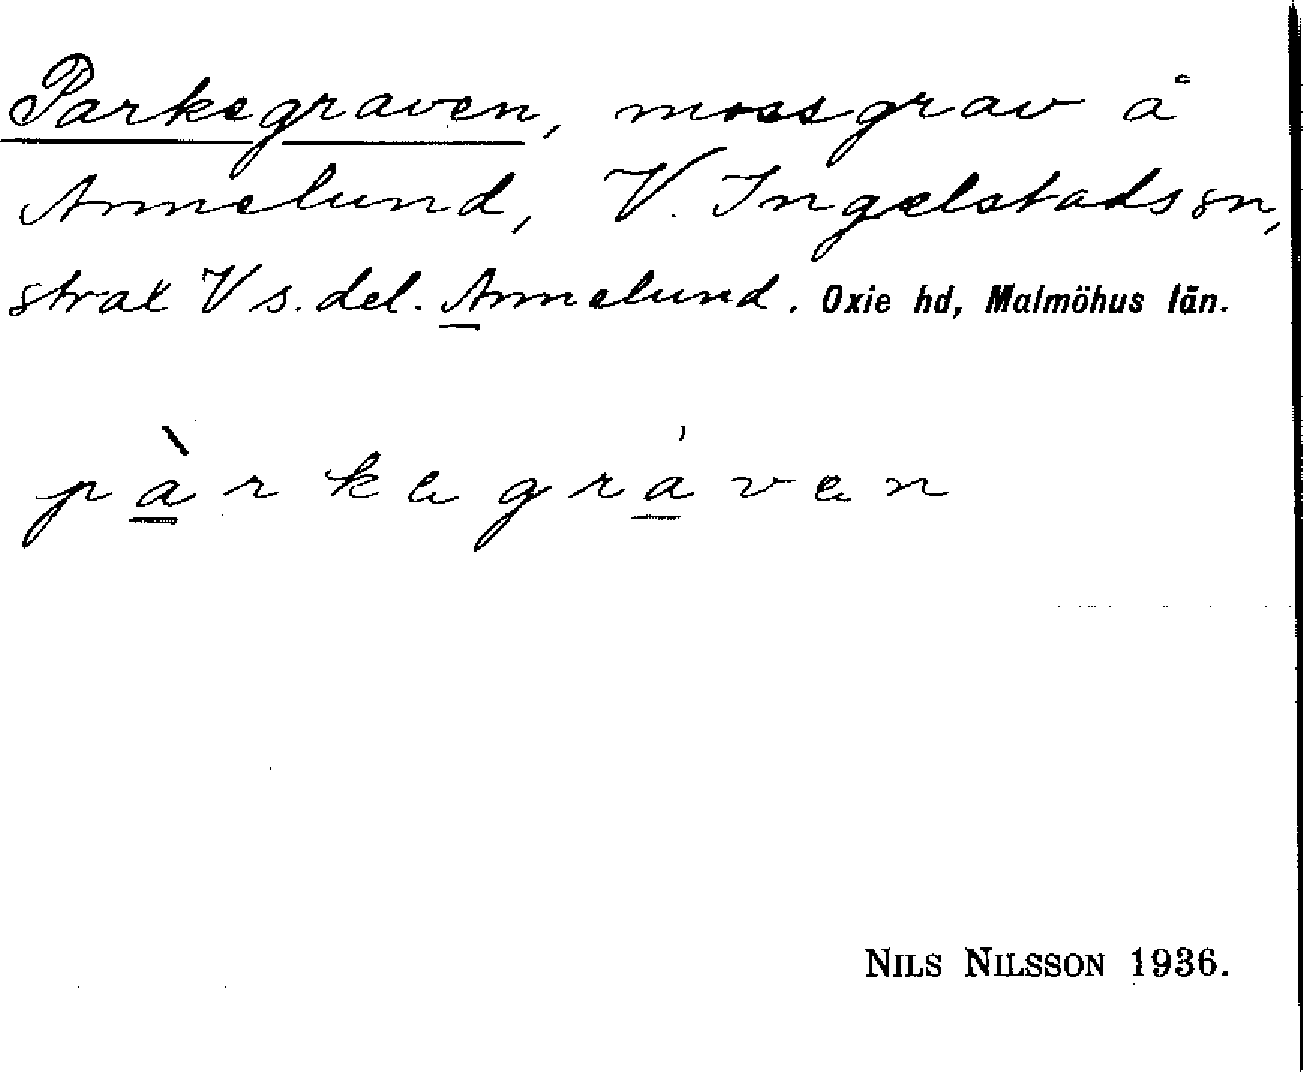 Parkegraven, mossgrav å
Annelund, V. Ingelstads sn,
strax V s. del. Annelund. Oxie hd, Malmöhus län.
pàrkegráven
NILS NILSSON 1936.